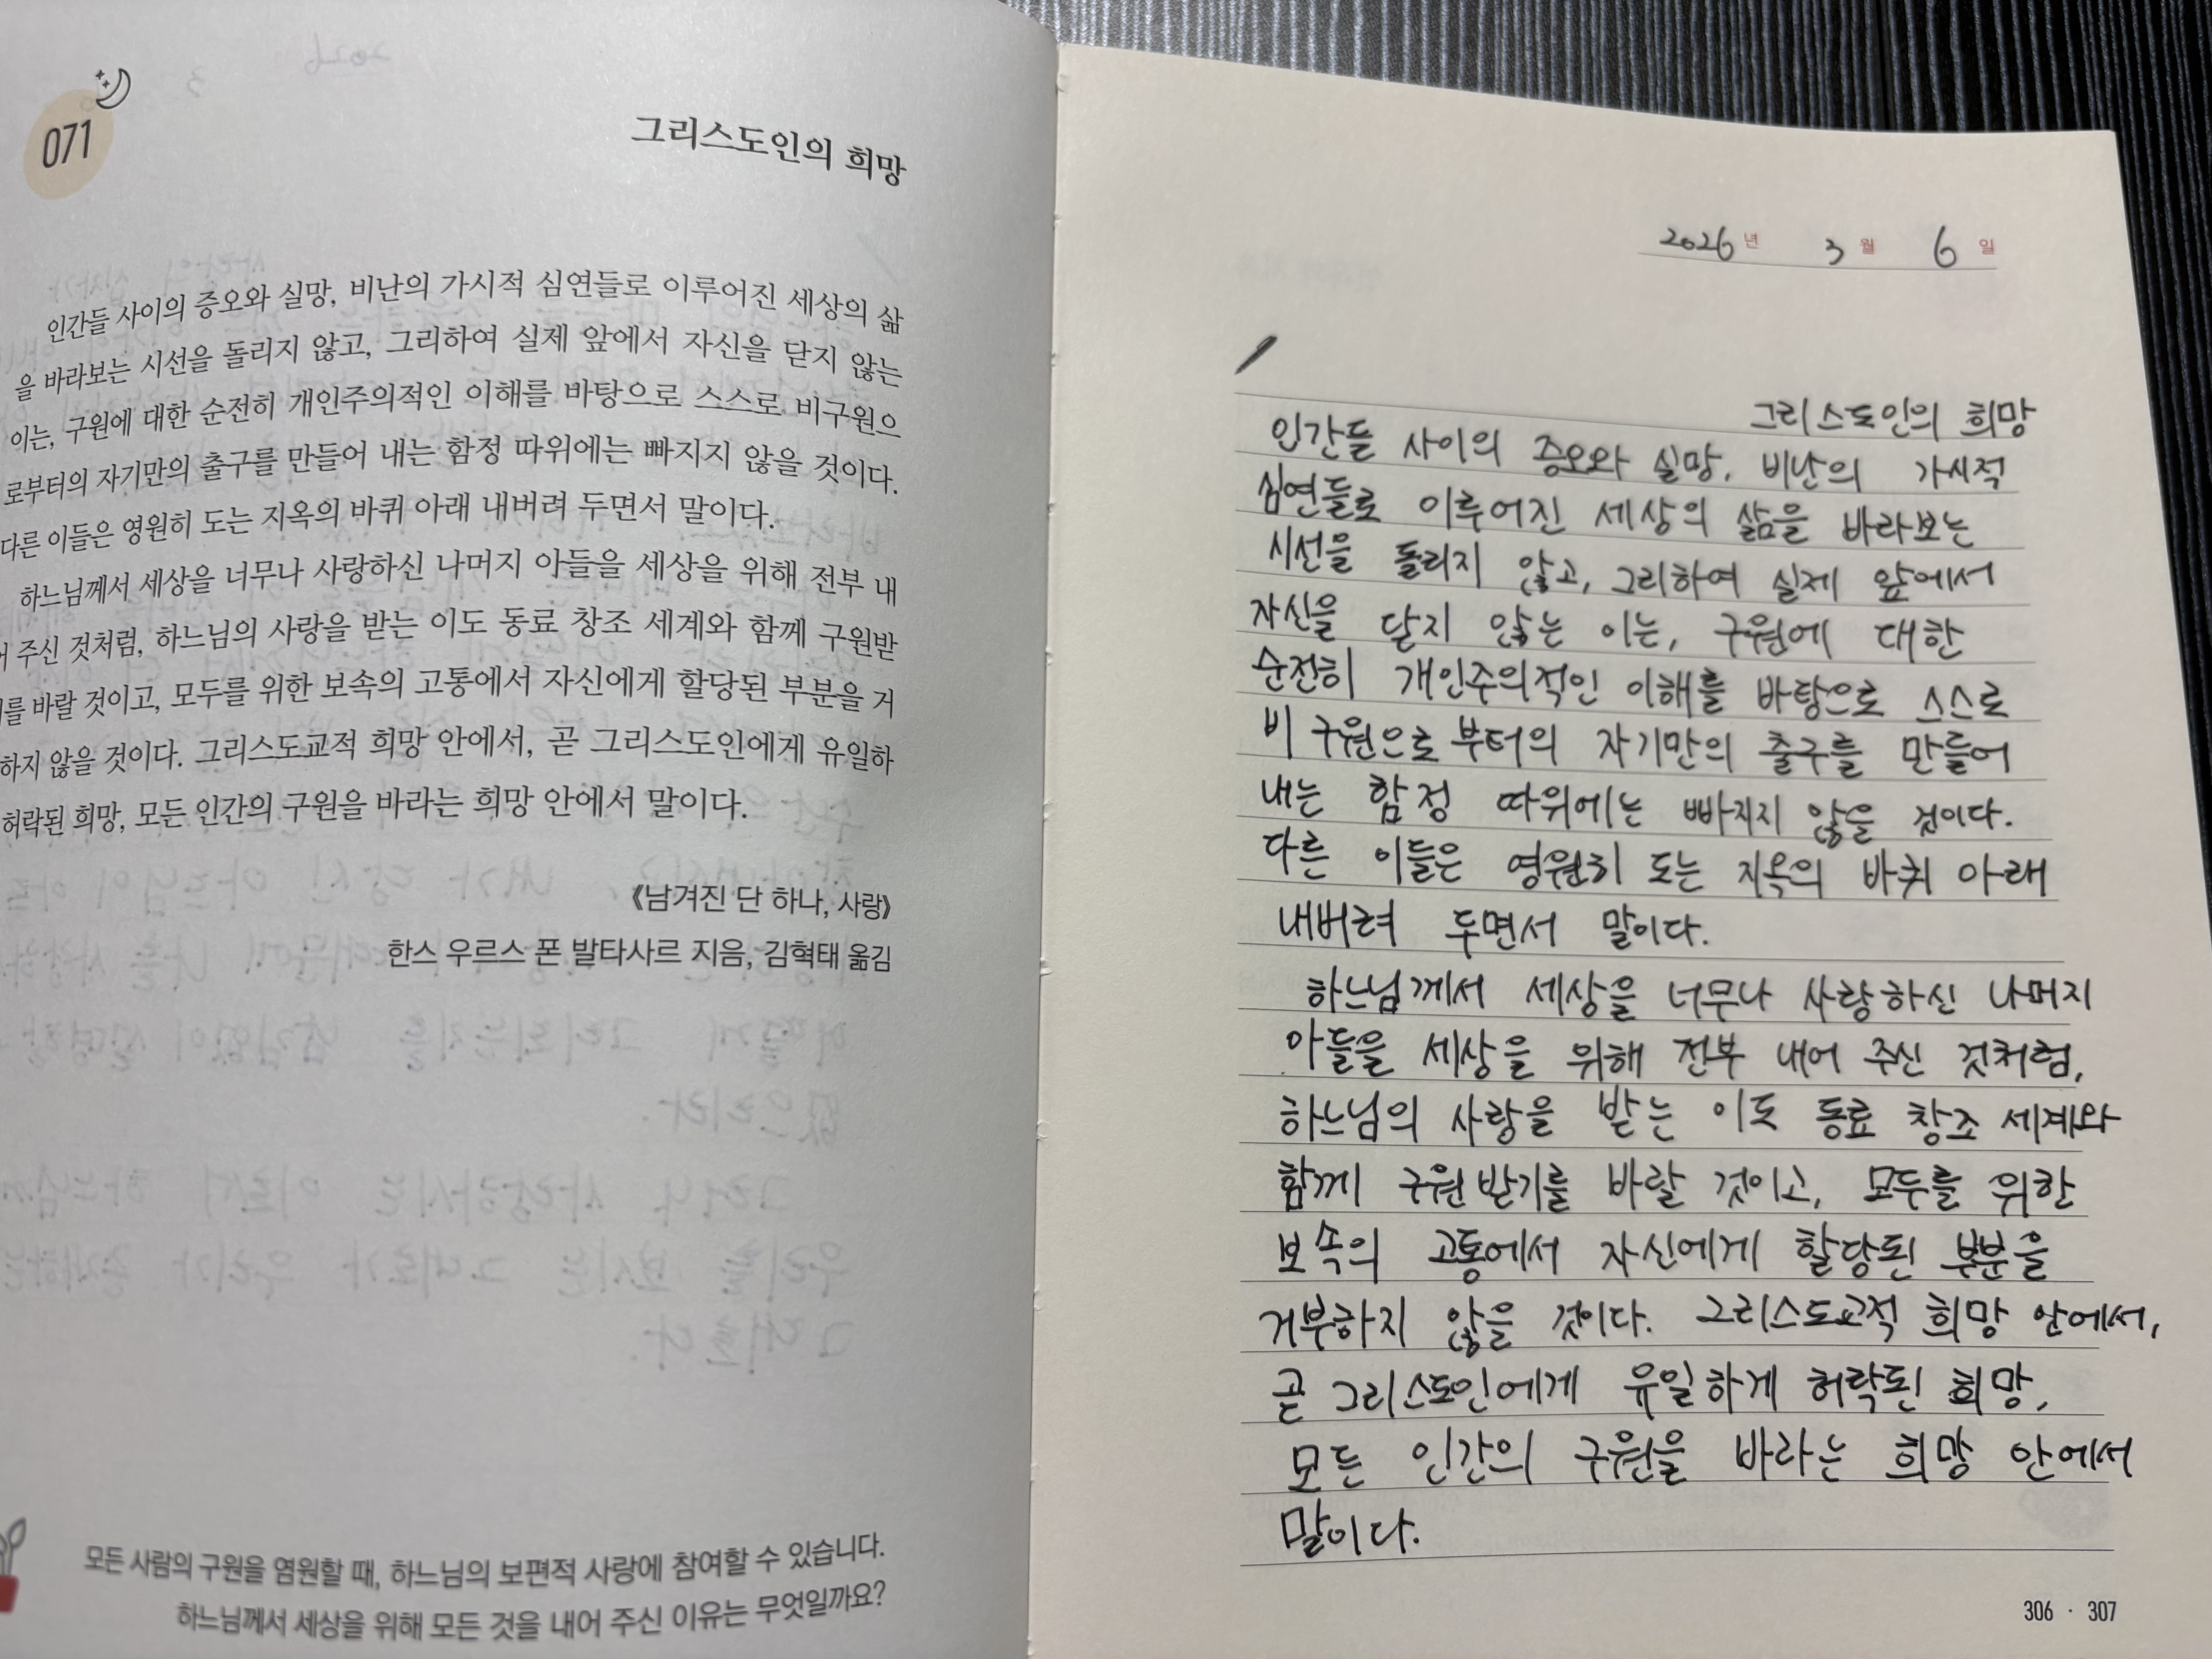 071
그리스도인의 희망
인간들 사이의 증오와 실망, 비난의 가시적 심연들로 이루어진 세상의 삶
을 바라보는 시선을 돌리지 않고, 그리하여 실제 앞에서 자신을 닫지 않는
이는, 구원에 대한 순전히 개인주의적인 이해를 바탕으로 스스로 비구원으
로부터의 자기만의 출구를 만들어 내는 함정 따위에는 빠지지 않을 것이다.
다른 이들은 영원히 도는 지옥의 바퀴 아래 내버려 두면서 말이다.
하느님께서 세상을 너무나 사랑하신 나머지 아들을 세상을 위해 전부 내
어 주신 것처럼, 하느님의 사랑을 받는 이도 동료 창조 세계와 함께 구원받
기를 바랄 것이고, 모두를 위한 보속의 고통에서 자신에게 할당된 부분을 거
하지 않을 것이다. 그리스도교적 희망 안에서, 곧 그리스도인에게 유일하
허락된 희망, 모든 인간의 구원을 바라는 희망 안에서 말이다.
《남겨진 단 하나, 사랑》
한스 우르스 폰 발타사르 지음, 김혁태 옮김
모든 사람의 구원을 염원할 때, 하느님의 보편적 사랑에 참여할 수 있습니다.
하느님께서 세상을 위해 모든 것을 내어 주신 이유는 무엇일까요?
2026년 3월 6일
그리스도인의 희망
인간들 사이의 증오와 실망, 비난의 가시적
심연들로 이루어진 세상의 삶을 바라보는
시선을 돌리지 않고, 그리하여 실제 앞에서
자신을 닫지 않는 이는, 구원에 대한
순전히 개인주의적인 이해를 바탕으로 스스로
비구원으로부터의 자기만의 출구를 만들어
내는 함정 따위에는 빠지지 않을 것이다.
다른 이들은 영원히 도는 지옥의 바퀴 아래
내버려 두면서 말이다.
하느님께서 세상을 너무나 사랑하신 나머지
아들을 세상을 위해 전부 내어 주신 것처럼,
하느님의 사랑을 받는 이도 동료 창조 세계와
함께 구원받기를 바랄 것이고, 모두를 위한
보속의 고통에서 자신에게 할당된 부분을
거부하지 않을 것이다. 그리스도교적 희망 안에서,
곧 그리스도인에게 유일하게 허락된 희망,
모든 인간의 구원을 바라는 희망 안에서
말이다.
306 · 307